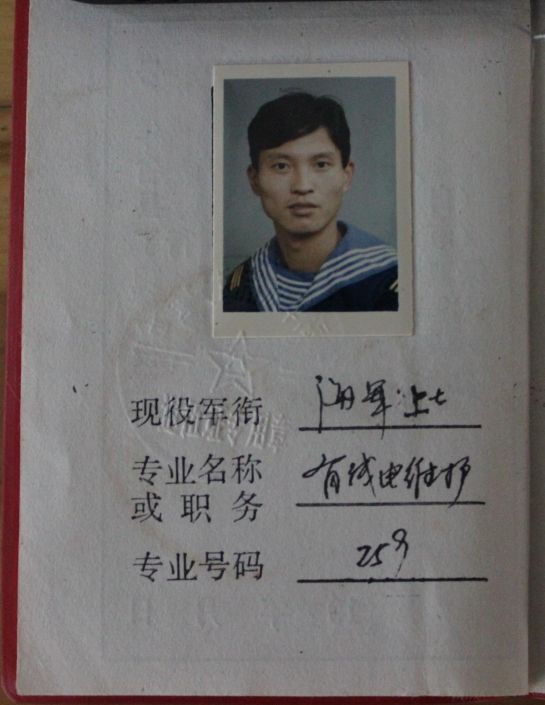 现役军衔 海军上士
专业名称 有线电维护
或职务
专业号码 259